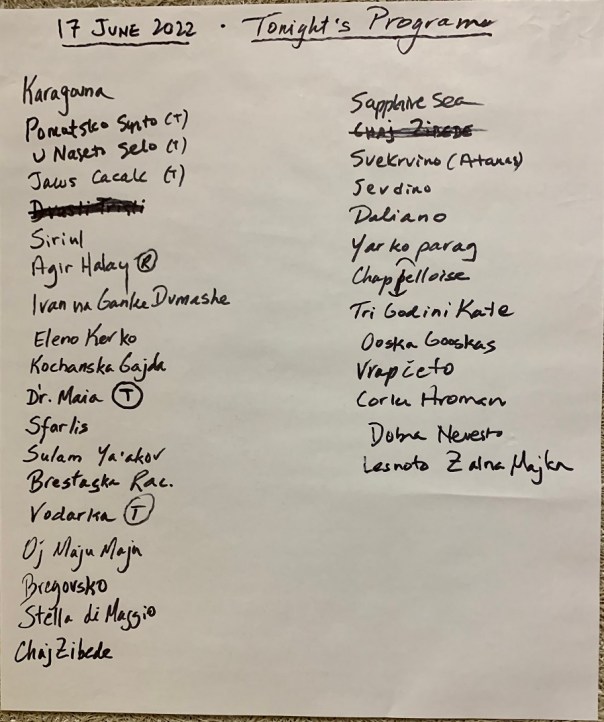 17 June 2022 · Tonight's Programe
Karagama
Pomatsko Synto (T)
U Naseto Selo (T)
Jaws Cacak (T)
Sirinl
Agir Halay (R)
Ivan na Ganke Dumashe
Eleno Kerko
Kochanska Gajda
Dr. Maia (T)
Sfarlis
Sulam Ya'akov
Brestaska Rac.
Vodarka (T)
Oj Maju Maju
Bregovsko
Stella di Maggio
Chaj Zibede
Sapphire Sea
Chaj Zibede
Svekrvino (Atanas)
Sevdino
Daliano
Yarko parag
Chappelloise
Tri Godini Kate
Ooska Gooskas
Vrapčeto
Corlu Hroman
Dobra Nevesto
Lesnoto Zalna Majka